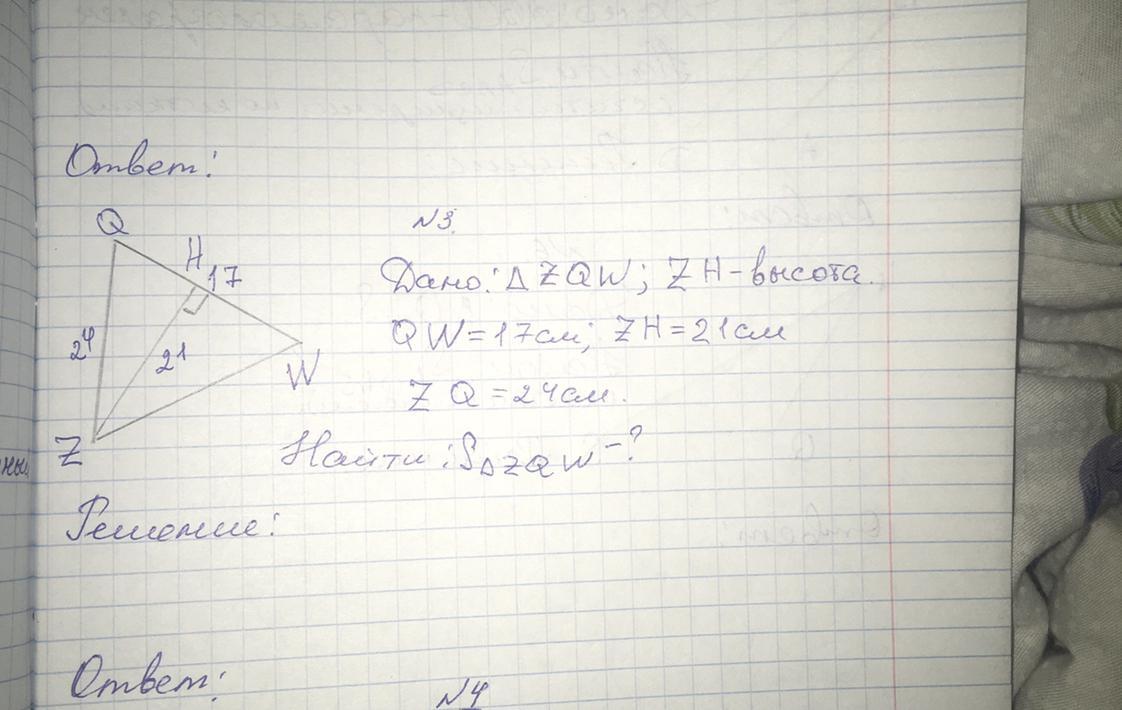 Ответ:
N3.
Q
H
17
24
21
W
Z
Дано: Δ ZQW; ZH - высота.
QW = 17см; ZH = 21см
ZQ = 24см.
Найти: SΔZQW - ?
Решение:
Ответ:
N4